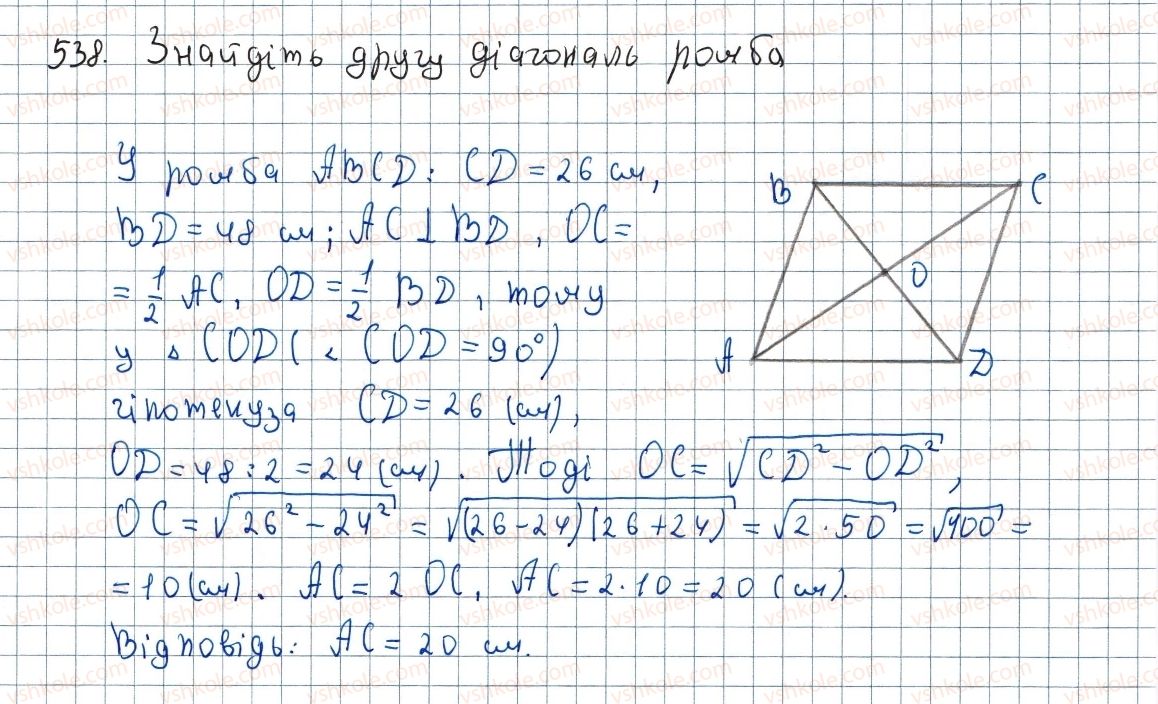 538. Знайдіть другу діагональ ромба
У ромба ABCD: CD = 26 см,
BD = 48 см; AC ⊥ BD, OC =
= 1/2 AC, OD = 1/2 BD, тому
у △ COD (∠ COD = 90°)
гіпотенуза CD = 26 (см),
OD = 48 : 2 = 24 (см). Тоді OC = √(CD² − OD²),
OC = √(26² − 24²) = √((26 − 24)(26 + 24)) = √(2 · 50) = √100 =
= 10 (см). AC = 2 OC, AC = 2 · 10 = 20 (см).
Відповідь: AC = 20 см.
B
C
O
A
D
vshkole.com